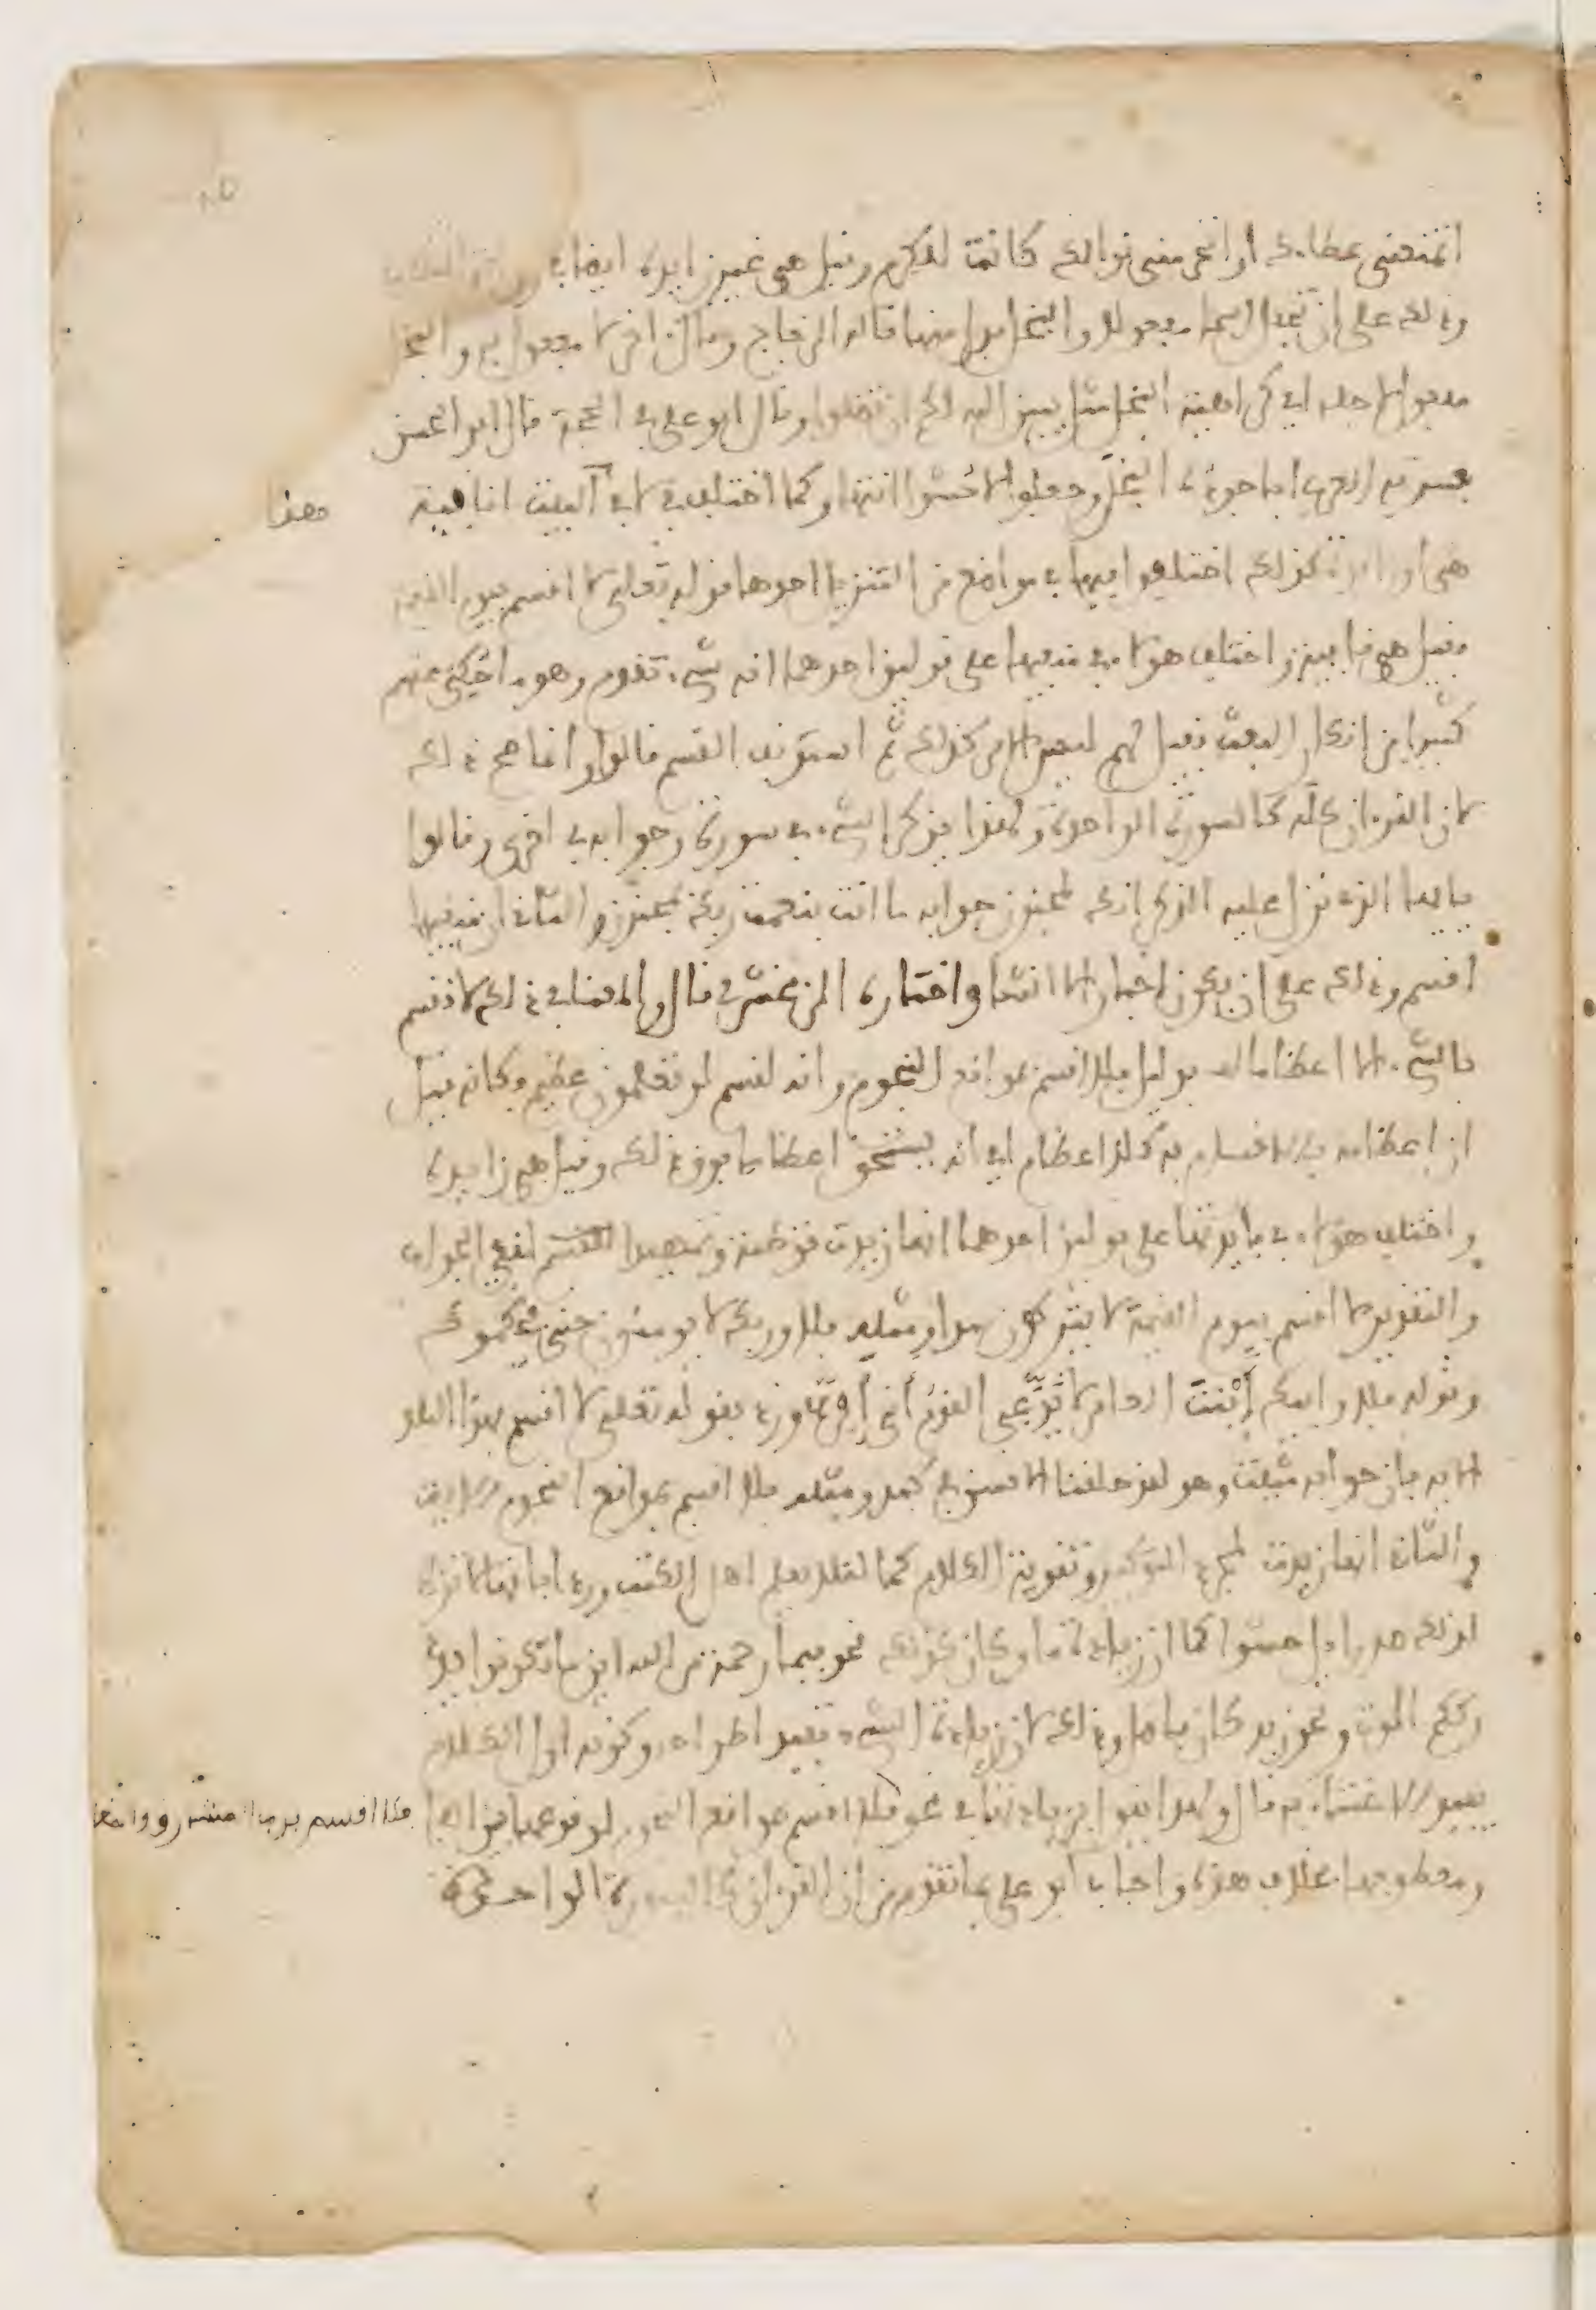 اتمنعني عطاءك او اتحرمني نوالك كانت للكرم وقيل هي غير زايدة ايضا في رواية النصب
وذلك على ان تجعل اسما مفعولا والبخل بدلا منها قاله الزجاج وقال اخر لا مفعول به والبخل
مفعولا لاجله اي كراهية البخل مثل يبين الله لكم ان تضلوا وقال ابو علي في الحجة قال ابو الحسن
فسرته العرب ابا جوده البخل وجعلوا لا حشوا انتهى وكما اختلف في لا في البيت انافية
هي او زايدة كذلك اختلفوا فيها في مواضع من التنزيل احدها قوله تعالى لا اقسم بيوم القيمة
فقيل هي نافية واختلف هؤلاء في منفيها على قولين احدهما انه شيء تقدم وهو ما حكي عنهم
كثيرا من انكار البعث فقيل لهم ليس الامر كذلك ثم استونف القسم قالوا وانما صح ذلك
لان القرءان كله كالسورة الواحدة ولهذا يذكر الشيء في سورة وجوابه في اخرى وقالوا
يا ايها الذي نزل عليه الذكر انك لمجنون جوابه ما انت بنعمة ربك بمجنون والثاني ان منفيها
اقسم وذلك على ان يكون اخبارا لا انشا واختاره الزمخشري قال والمعنا في ذلك لا نقسم
بالشيء الا اعظاما له بدليل فلا اقسم بمواقع النجوم وانه لقسم لو تعلمون عظيم وكانه قيل
ان اعظامه بالاقسام به كلا اعظام اي انه يستحق اعظاما فوق ذلك وقيل هي زايدة
واختلف هؤلاء في فايدتها على قولين احدهما انها زيدت توطئة وتمهيدا لنفي الجواب
والتقدير لا اقسم بيوم القيمة لا يتركون سدا ومثله فلا وربك لا يومنون حتى يحكموك
وقوله فلا وابيك ابنت العامري لا يدعي القوم أني أفر ورد بقوله تعلى لا اقسم بهذا البلد
الاية فان جوابه مثبت وهو لقد خلقنا الانسان في كبد ومثله فلا اقسم بمواقع النجوم الاية
والثاني انها زيدت لمجرد التوكيد وتقوية الكلام كما لئلا يعلم اهل الكتب ورد بانها لا تزاد
لذلك صدرا بل حشوا كما ان زيادة ما وكان كذلك نحو فبما رحمة من الله اين ما تكونوا يدر
رككم الموت ونحو زيد كان فاضل وذلك لان زيادة الشيء تفيد اطراحه وكونه اول الكلام
يفيد الاعتناء به قال ولهذا نقول بزيادتها في نحو فلا اقسم بمواقع النجوم لوقوعها بين الفا
فلا اقسم برب المشرق وا
ومعطوفها بخلاف هذه واجاب ابو علي بما تقدم من ان القرءان كالسورة الواحدة
فهذا